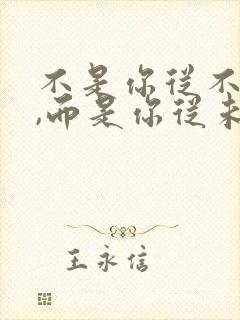 不是你从不
,而是你从未
王永信